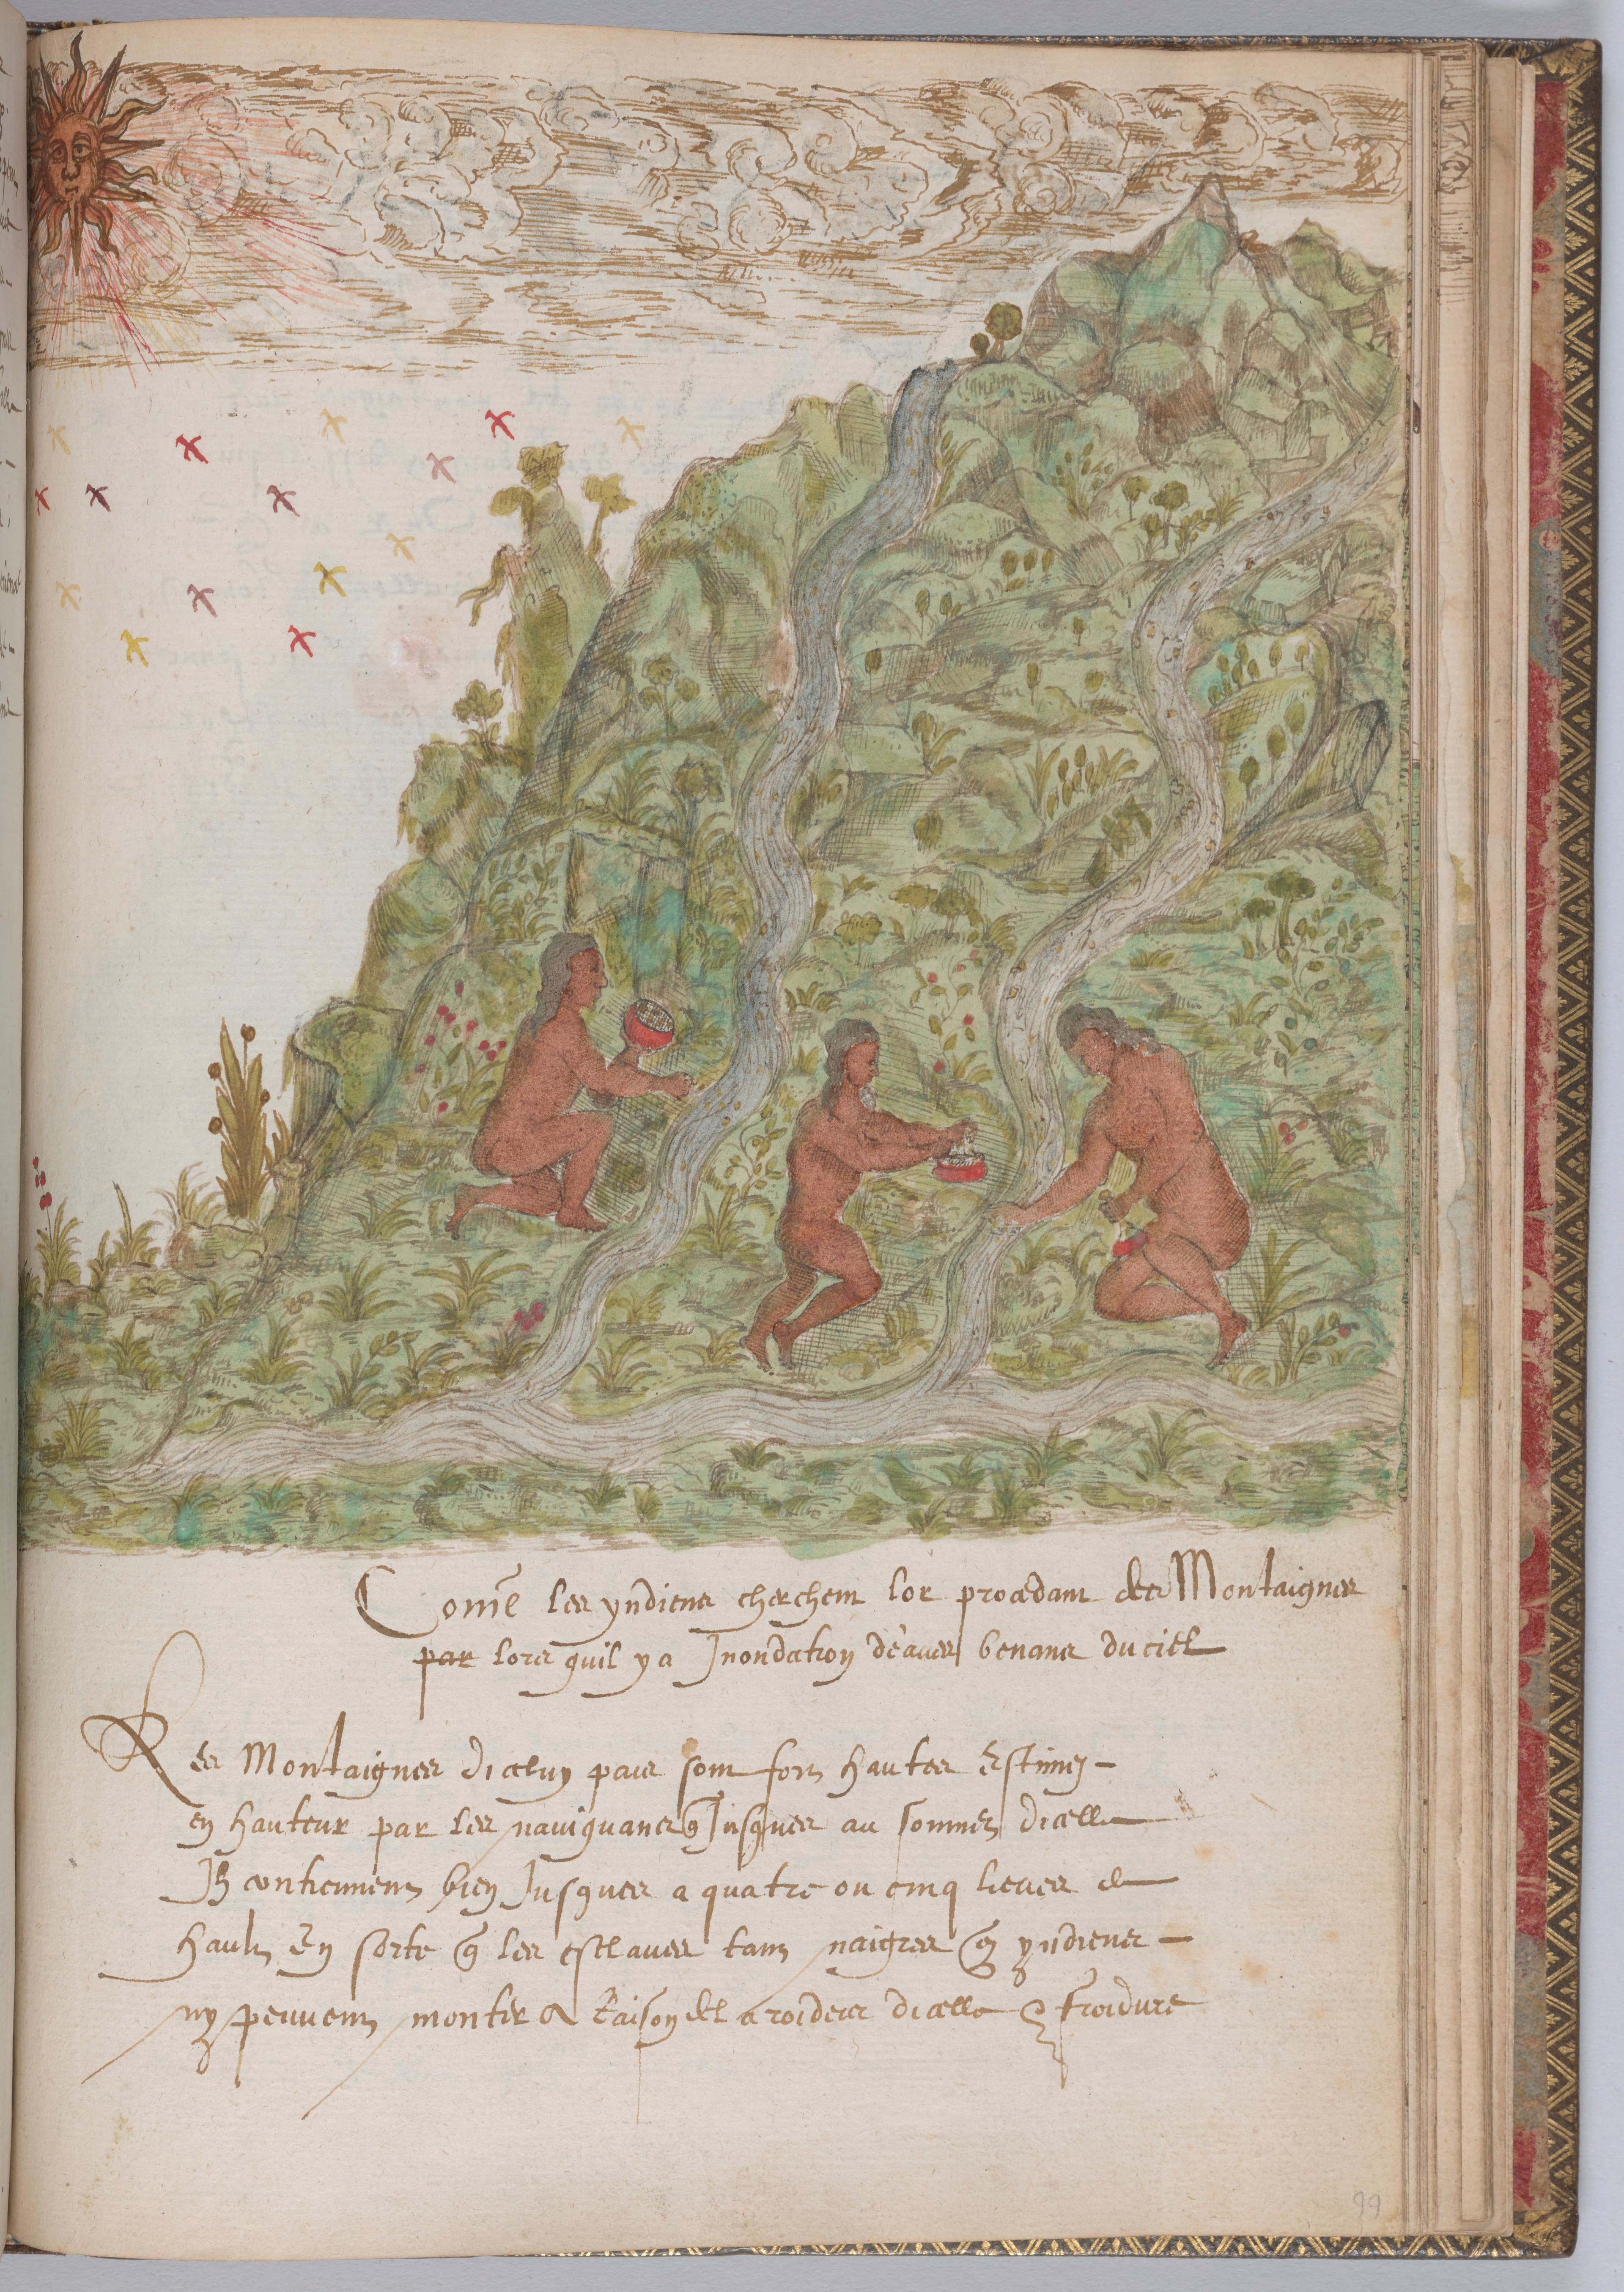 Comē les yndiens cherchent lor procedant des Montaignes
par lors quil y a Inondation deaues venans du ciel
Les Montaignes diceluy pais sont fort hautes Estimez
en hauteur par les naviguans q̃ Jusques au sommet dicelle
Ilz contiennent bien Jusques a quatre ou cinq lieues de
hault En sorte q̃ les esclaves tant naigres q̃ yndiens
ny peuvent monter a Raison de la roideur dicelle & froidure
99